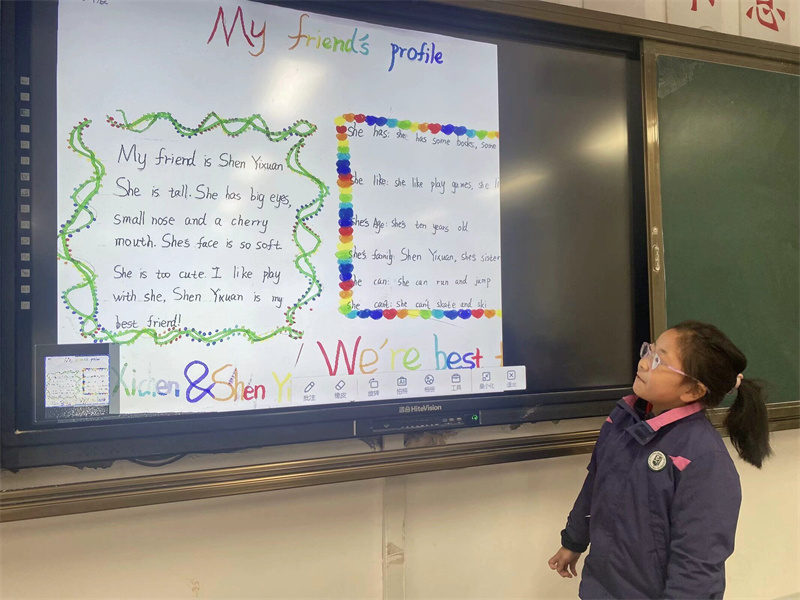 My friend's profile
My friend is Shen Yixuan
She is tall. She has big eyes,
small nose and a cherry
mouth. She's face is so soft
She is too cute. I like play
with she, Shen Yixuan is my
best friend!
She has: she has some books, some
She like: she like play games, she li
She's Age: she's ten years old
She's family: Shen Yixuan, she's sister
She can: she can run and jump
She can't: she can't skate and ski
&Shen Yi
We're best
批注 橡皮 旋转 拍照 视频 工具 最小化 退出
HiteVision